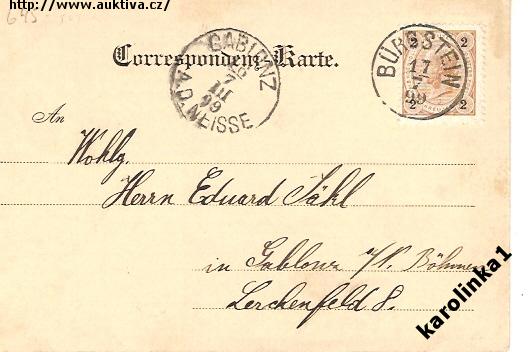 http://www.auktiva.cz/
645
Correspondenz-Karte.
GABLONZ
7
III
99
A.D. NEISSE
2 2
BÜRGSTEIN
17
99
2 2
An
Wohlg.
Herrn Eduard Jäkl
in Gablonz a/N. Böhmen
Lerchenfeld 8.
karolinka1